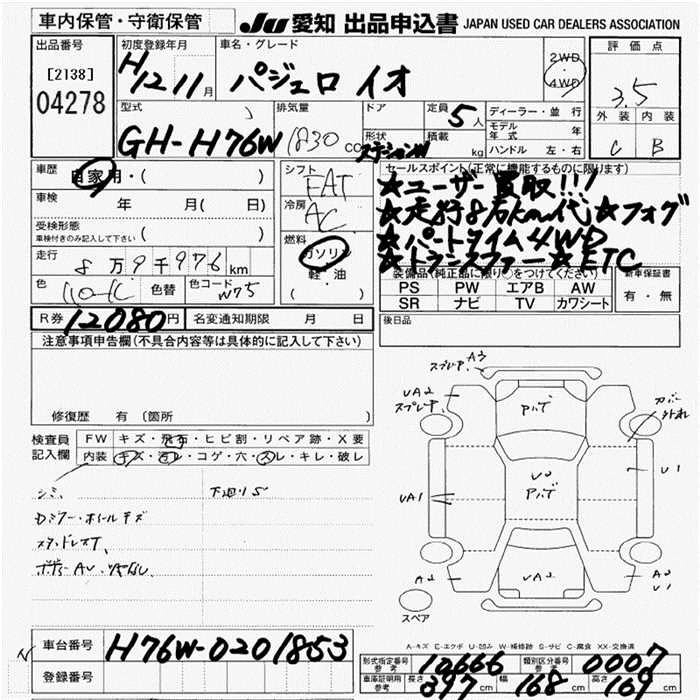 車内保管・守衛保管
JU 愛知 出品申込書 JAPAN USED CAR DEALERS ASSOCIATION
出品番号
[2138]
04278
初度登録年月
H12 11月
車名・グレード
パジェロ イオ
2WD
・
4WD
評価点
3.5
外装 内装
C B
型式
GH-H76W
排気量
1830 cc
ドア
形状
ステーションW
定員
5人
積載
kg
ディーラー・並行
モデル年式 年
ハンドル 左・右
車歴
自家用・( )
車検
年 月( 日)
受検形態
車検付きのみ記入して下さい ( )
走行
8万9千976km
色
色替
色コード
W75
シフト
FAT
冷房
AC
燃料
ガソリン
軽・油
( )
セールスポイント(正常に機能するものに限ります)
★ユーザー買取!!!
★走行8万km代★フォグ
★パートタイム4WD
★トランスファー★ETC
装備品(純正品に限り○をつけてください)
PS PW エアB AW
SR ナビ TV カワシート
新車保証書
有・無
R券 12080円
名変通知期限 月 日
後日品
注意事項申告欄(不具合内容等は具体的に記入して下さい)
修復歴 有 〔箇所 〕
検査員
記入欄
FW キズ・飛石・ヒビ割・リペア跡・X要
内装 キズ・汚レ・コゲ・穴・スレ・キレ・破レ
シミ、
下廻りS
Dミラー・ホイールキズ
スタッドレスT、
スプレー中 A3
UA2
スプレー中
Pハゲ
カバー外れ
U1
UA1
UD
Pハゲ
A2
UA2
A2
U1
スペア
A-キズ E-エクボ U-凹み W-補修跡 S-サビ C-腐食 XX-交換済
車台番号
H76W-0201853
登録番号
形式指定番号
参考
10666
類別区分番号
参考
0007
車庫証明用
参考
長さ 397cm 幅 168cm 高さ 169cm